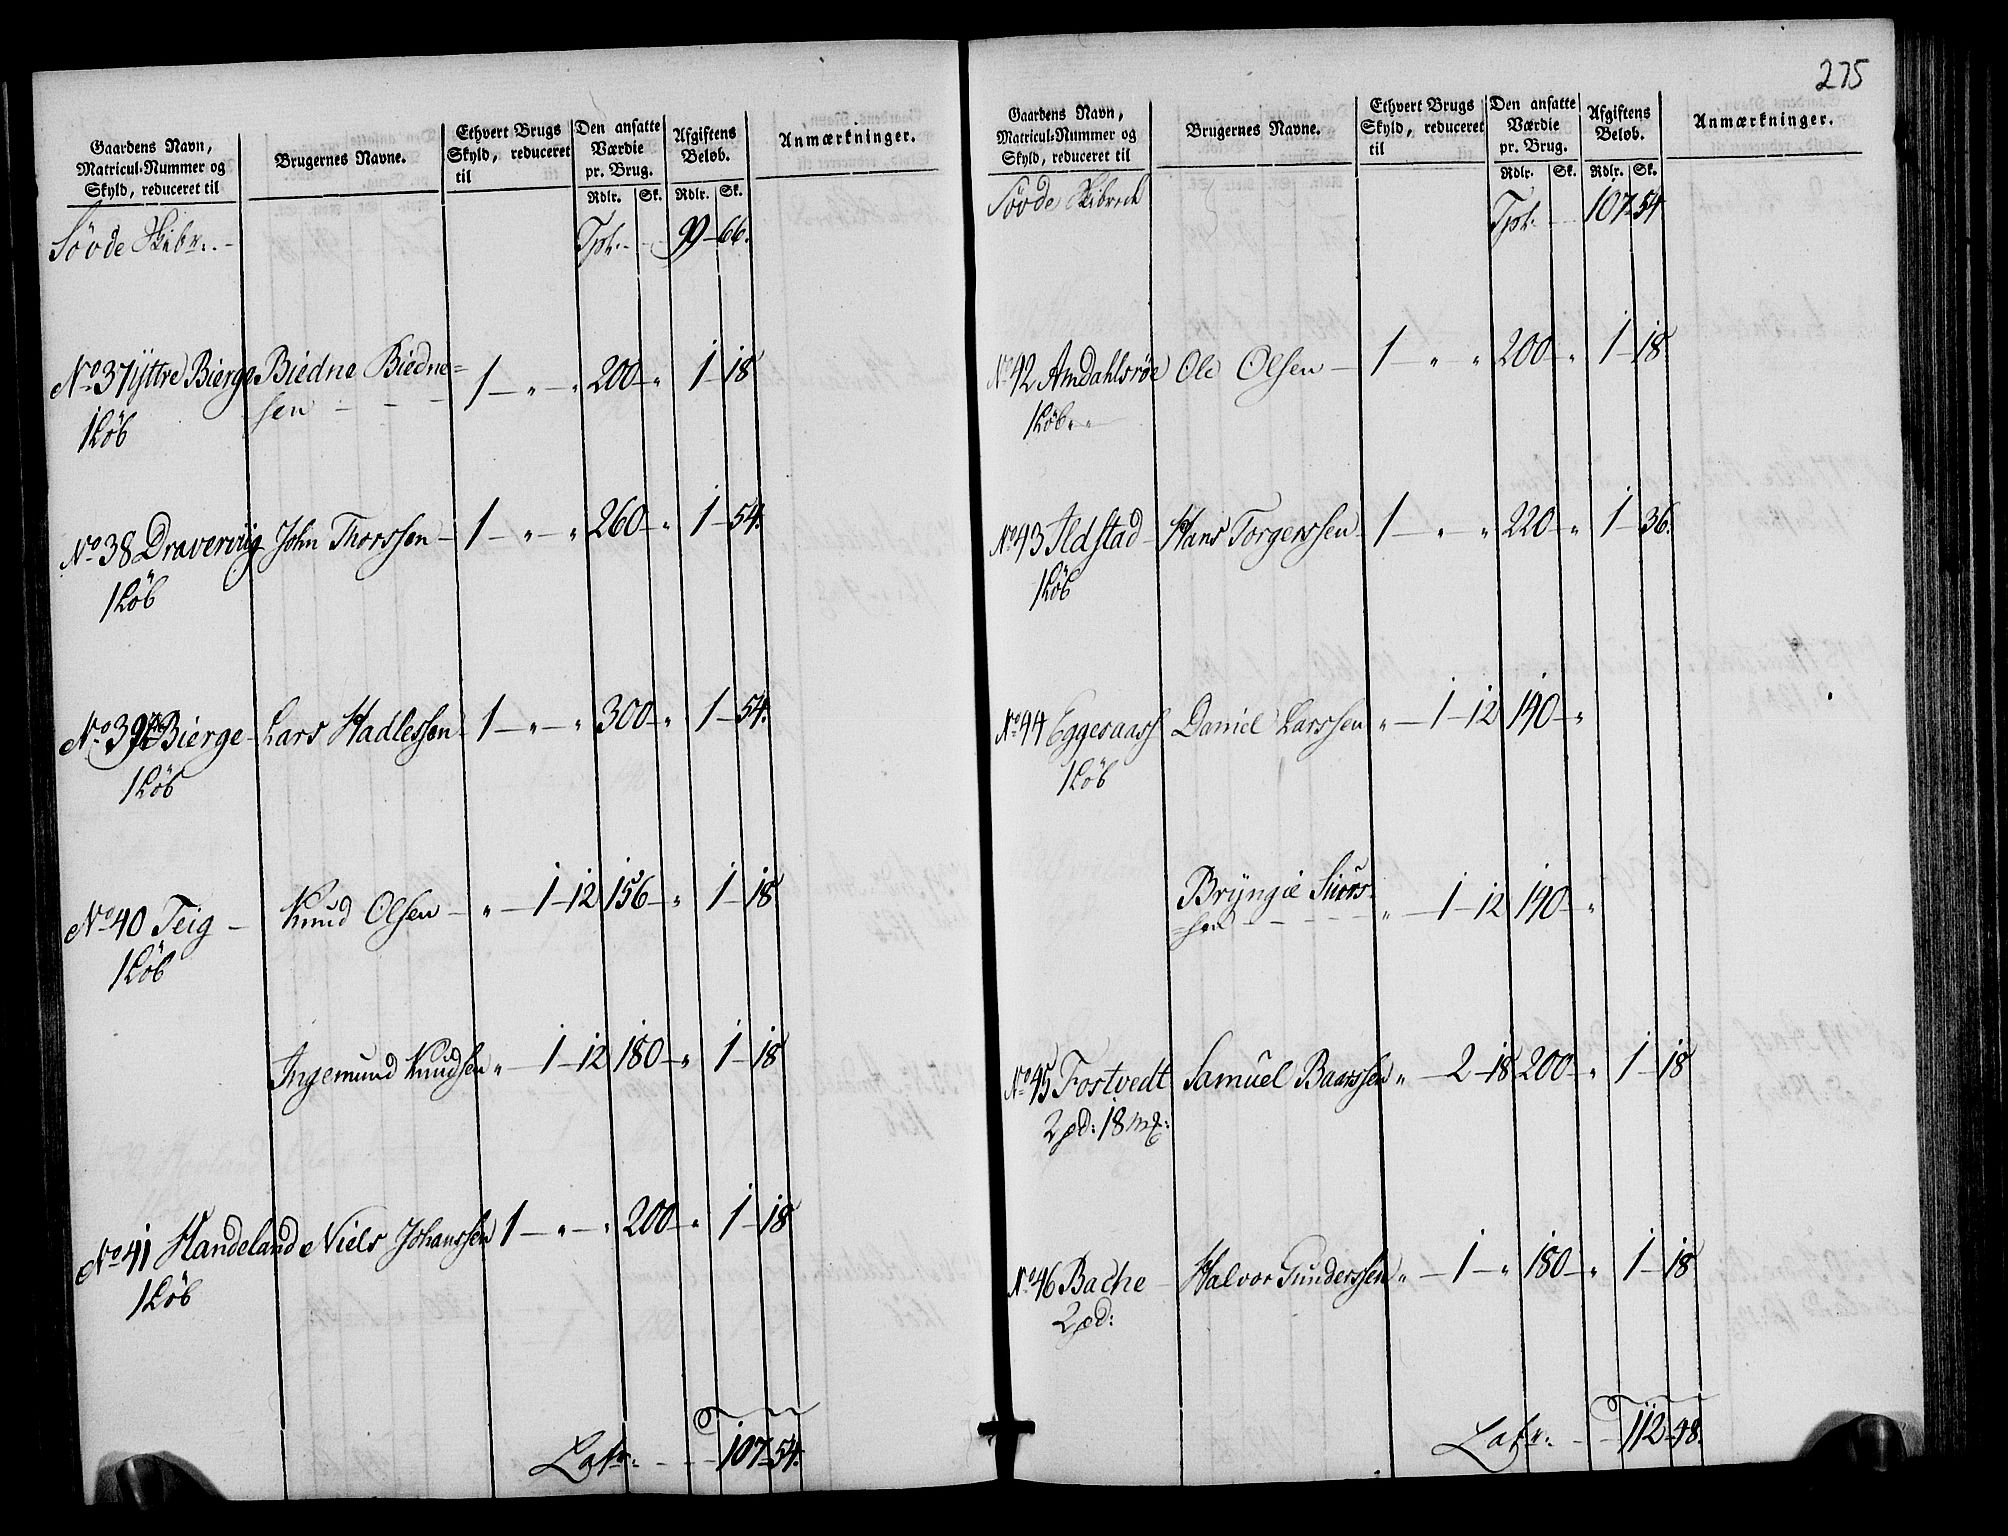 Gaardens Navn,
Matricul-Nummer og
Skyld, reduceret til
Brugernes Navne.
Ethvert Brugs
Skyld, reduceret
til
Den ansatte
Værdie
pr. Brug.
Rdlr. Sk.
Afgiftens
Beløb.
Rdlr. Sk.
Anmærkninger.
Søvde Skibr. Tpt. 99 66.
No 37 Yttre Bierge Biedne Biedne= 1 - " - " 200 " 1 18
sen
1 Løb
No 38 Dravervig John Thorssen 1 - " - " 260 " 1 54.
1 Løb
No 39 Bierge Lars Hadlessen 1 - " - " 300 " 1 54.
1 Løb
No 40 Teig Knud Olsen " 1 12 156 " 1 18
1 Løb
Ingemund Knudsen " 1 12 180 " 1 18
No 41 Handeland Niels Johanssen 1 - " - " 200 " 1 18
1 Løb
Latr: 107 54.
275
Gaardens Navn,
Matricul-Nummer og
Skyld, reduceret til
Brugernes Navne.
Ethvert Brugs
Skyld, reduceret
til
Den ansatte
Værdie
pr. Brug.
Rdlr. Sk.
Afgiftens
Beløb.
Rdlr. Sk.
Anmærkninger.
Søvde Skibred Tpt. 107 54
No 42 Amdahlsrøe Ole Olsen 1 - " " 200 " 1 18
1 Løb
No 43 Ildstad Hans Torgerssen 1 - " " 220 " 1 36.
1 Løb
No 44 Eggeraass Daniel Larssen " 1 12 140 "
1 Løb
Bryngie Siurs-
sen " 1 12 140 "
No 45 Fostvedt Samuel Baarssen " 2 18 200 " 1 18
2 pd: 18 mk:
No 46 Bache Halvor Gunderssen " 1 " 180 " 1 18
2 pd:
Latr: 112 48.